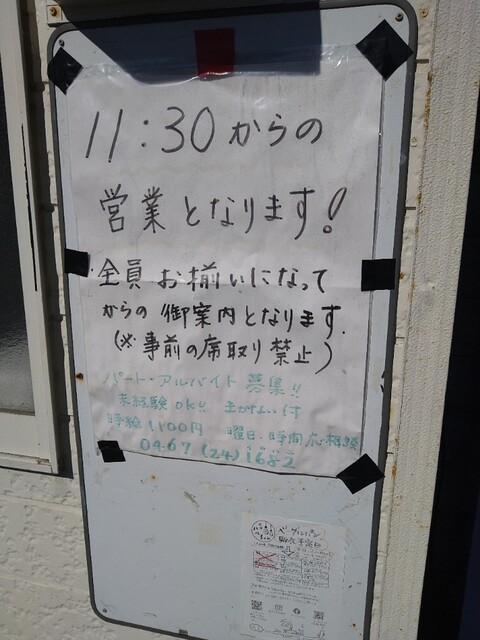 11:30からの
営業となります!
全員お揃いになって
からの御案内となります。
(※事前の席取り禁止)
パート・アルバイト募集!!
未経験OK!! まかない付
時給1100円 曜日・時間応相談
0467(24)1682
ベーグルパン